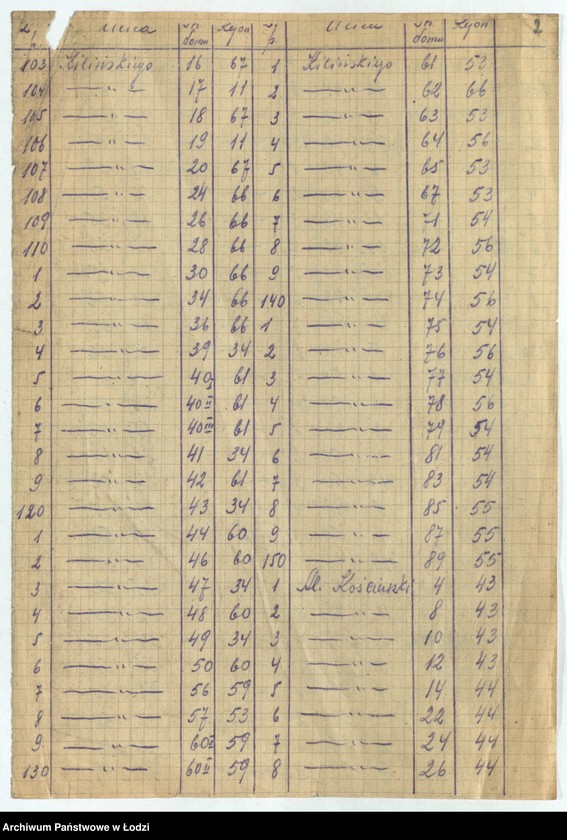 L. p. Ulica № domu Rejon L. p. Ulica № domu Rejon 2
103 Kilińskiego 16 67 1 Kilińskiego 61 53
104 — " — 17 11 2 — " — 62 66
105 — " — 18 67 3 — " — 63 53
106 — " — 19 11 4 — " — 64 56
107 — " — 20 67 5 — " — 65 53
108 — " — 24 66 6 — " — 67 53
109 — " — 26 66 7 — " — 71 54
110 — " — 28 66 8 — " — 72 56
1 — " — 30 66 9 — " — 73 54
2 — " — 34 66 140 — " — 74 56
3 — " — 36 66 1 — " — 75 54
4 — " — 39 34 2 — " — 76 56
5 — " — 40I 61 3 — " — 77 54
6 — " — 40II 61 4 — " — 78 56
7 — " — 40III 61 5 — " — 79 54
8 — " — 41 34 6 — " — 81 54
9 — " — 42 61 7 — " — 83 54
120 — " — 43 34 8 — " — 85 55
1 — " — 44 60 9 — " — 87 55
2 — " — 46 60 150 — " — 89 55
3 — " — 47 34 1 Al. Kościuszki 4 43
4 — " — 48 60 2 — " — 8 43
5 — " — 49 34 3 — " — 10 43
6 — " — 50 60 4 — " — 12 43
7 — " — 56 59 5 — " — 14 44
8 — " — 57 53 6 — " — 22 44
9 — " — 60I 59 7 — " — 24 44
130 — " — 60II 59 8 — " — 26 44
Archiwum Państwowe w Łodzi